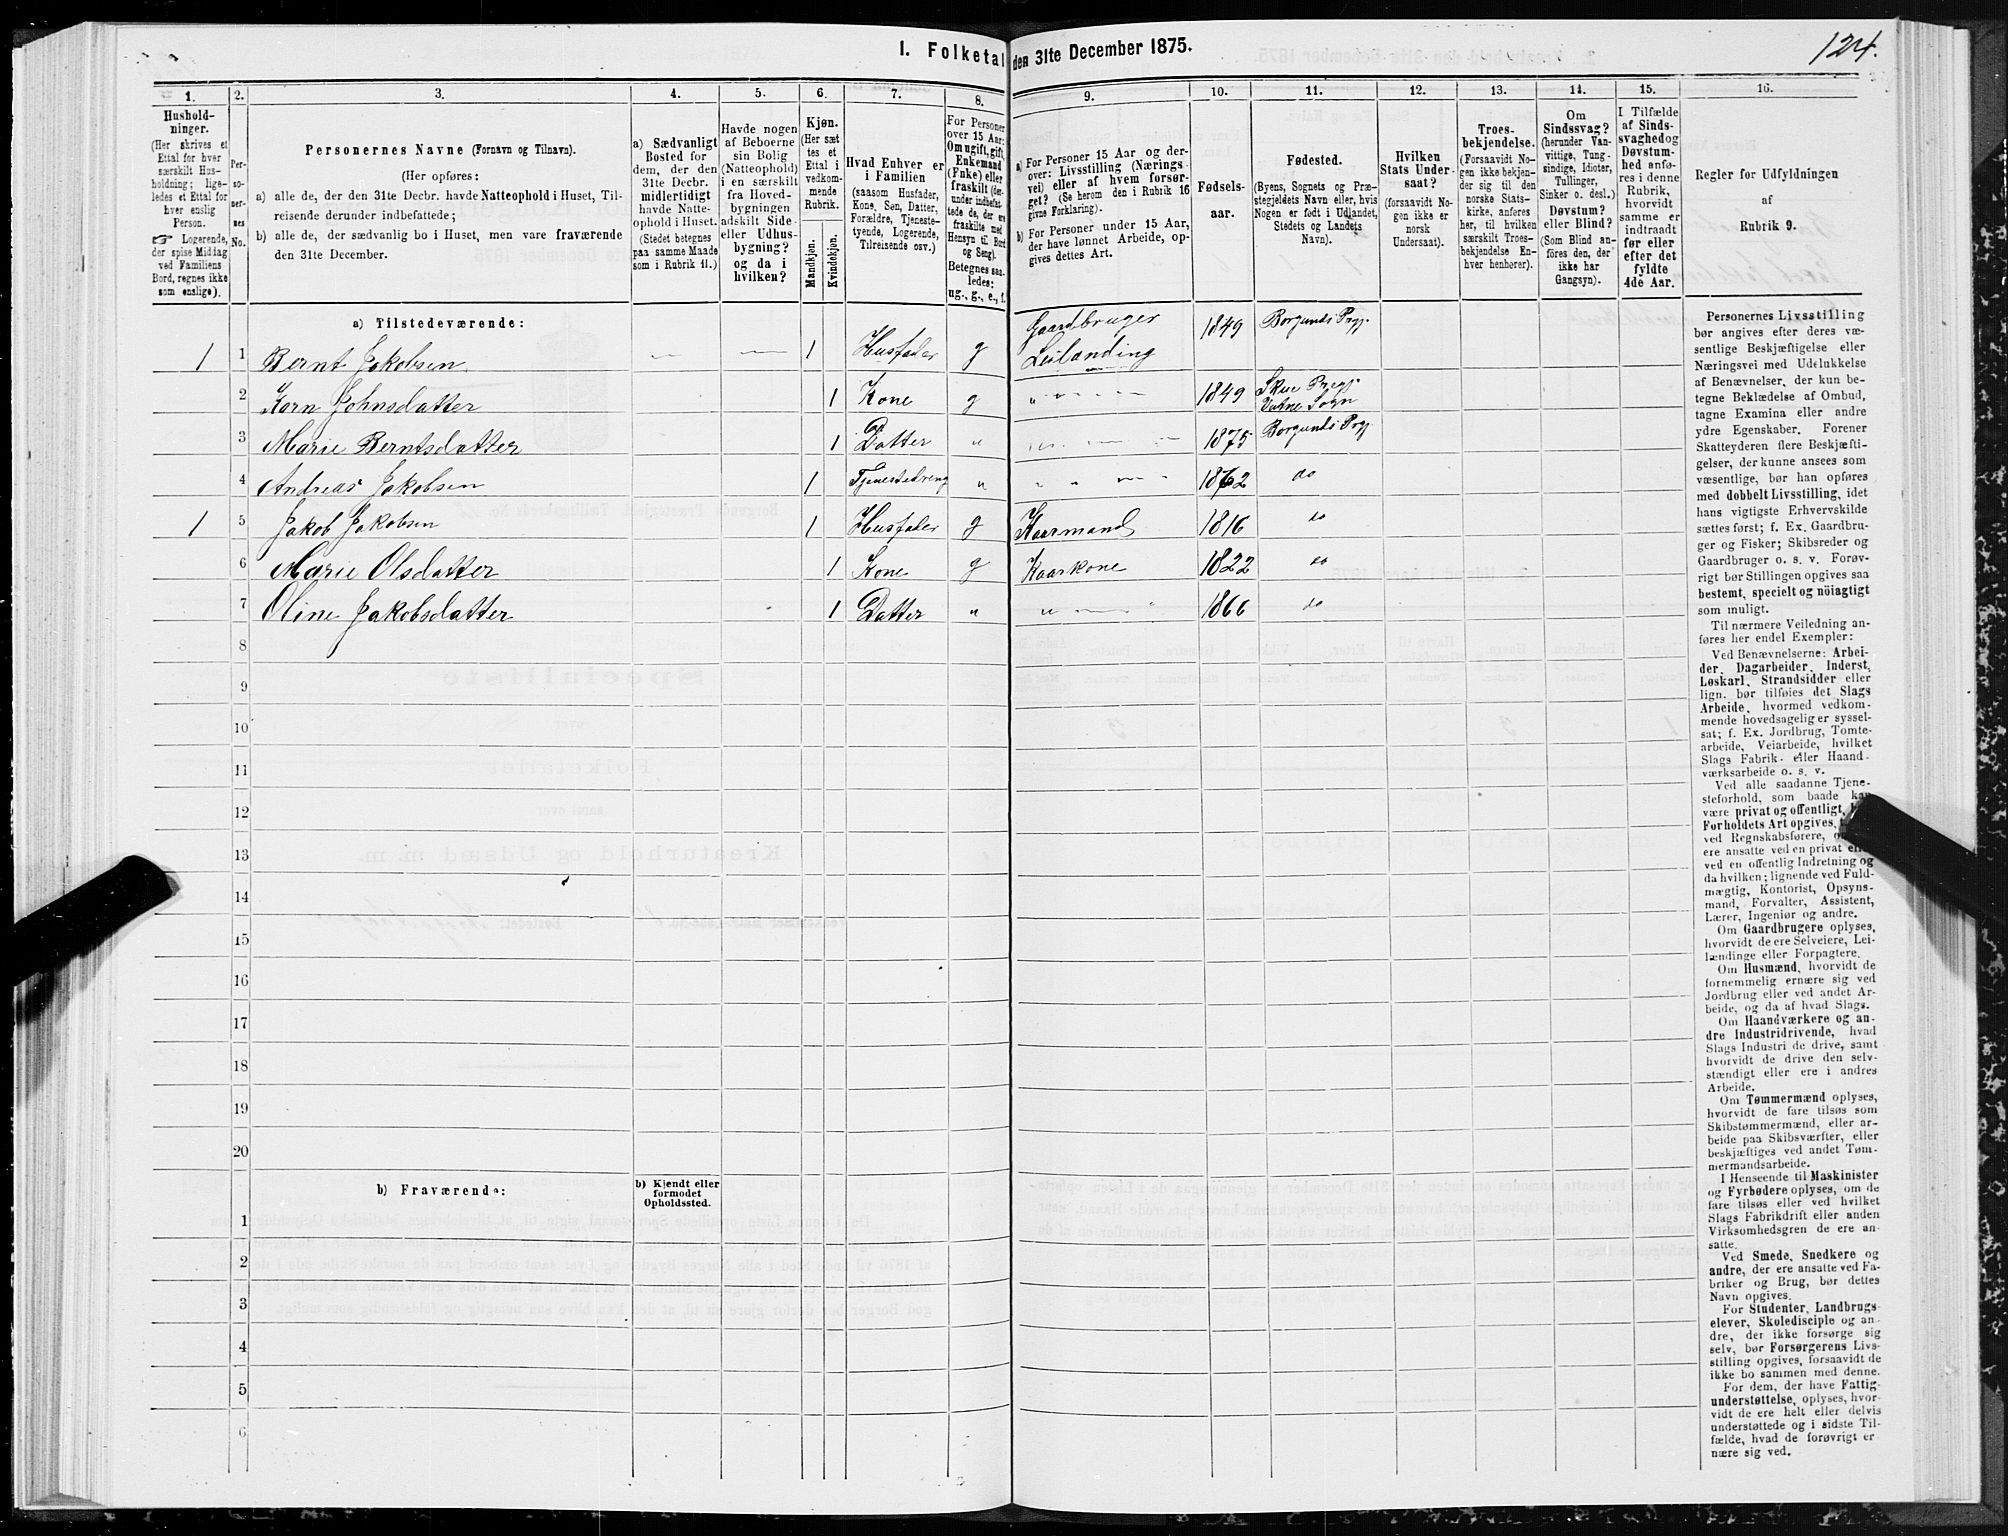 I. Folketal den 31te December 1875.
124.
1. 2. 3. 4. 5. 6. 7. 8. 9. 10. 11. 12. 13. 14. 15. 16.
Hushold-
ninger.
(Her skrives et
Ettal for hver
særskilt Hus-
holdning; lige-
ledes et Ettal for
hver enslig
Person.
☞ Logerende,
der spise Middag
ved Familiens
Bord, regnes ikke
som enslige).
Per-
so-
ner-
nes
No.
Personernes Navne (Fornavn og Tilnavn).
(Her opføres:
a) alle de, der den 31te Decbr. havde Natteophold i Huset, Til-
reisende derunder indbefattede;
b) alle de, der sædvanlig bo i Huset, men vare fraværende
den 31te December.
a) Sædvanligt
Bosted for
dem, der den
31te Decbr.
midlertidigt
havde Natte-
ophold i Huset.
(Stedet betegnes
paa samme Maade
som i Rubrik 11.)
Havde nogen
af Beboerne
sin Bolig
(Natteophold)
i en særskilt
fra Hoved-
bygningen
adskilt Side-
eller Udhus-
bygning?
og da i
hvilken?
Kjøn.
(Her sæt
tes et
Ettal i
vedkom-
mende
Rubrik.
Mandkjøn.
Kvindekjøn.
Hvad Enhver er
i Familien
(saasom Husfader,
Kone, Søn, Datter,
Forældre, Tjeneste-
tyende, Logerende,
Tilreisende osv.)
For Personer
over 15 Aar:
Om ugift, gift,
Enkemand
(Enke) eller
fraskilt (der-
under indbefat-
tede de, der ere
fraskilte med
Hensyn til Bord
og Seng).
Betegnes saa-
ledes:
ug., g., e., f.
a) For Personer 15 Aar og der-
over: Livsstilling (Nærings-
vei) eller af hvem forsør-
get? (Se herom den i Rubrik 16
givne Forklaring).
b) For Personer under 15 Aar,
der have lønnet Arbeide, op-
gives dettes Art.
Fødsels-
aar.
Fødested.
(Byens, Sognets og Præ-
stegjeldets Navn eller, hvis
Nogen er født i Udlandet,
Stedets og Landets
Navn).
Hvilken
Stats Under-
saat?
(forsaavidt No-
gen ikke er
norsk
Undersaat).
Troes-
bekjendelse.
(Forsaavidt No-
gen ikke bekjen-
der sig til den
norske Stats-
kirke, anføres
her, til hvilken
særskilt Troes-
bekjendelse En-
hver henhører).
Om
Sindssvag?
(herunder Van-
vittige, Tung-
sindige, Idioter,
Tullinger,
Sinker o. desl.)
Døvstum?
eller Blind?
(Som Blind an-
føres den, der
ikke har
Gangsyn).
I Tilfælde
af Sinds-
svaghed og
Døvstum-
hed anfø-
res i denne
Rubrik,
hvorvidt
samme er
indtraadt
før eller
efter det
fyldte
4de Aar.
Regler for Udfyldningen
af
Rubrik 9.
a) Tilstedeværende:
1 1 Bernt Jakobsen — — 1 Husfader g Gaardbruger Leilænding 1849 Borgunds Prgj.
2 Korn Johnsdatter 1 Kone g 1849 Skue Prgj. Vatne Sogn
3 Marie Berntsdatter 1 Datter " 1875 Borgunds Prgj.
4 Andreas Jakobsen 1 Tjenestedreng " 1862 do
1 5 Jakob Jakobsen 1 Husfader g Kaarmand 1816 do
6 Marie Olsdatter 1 Kone g Kaarkone 1822 do
7 Oline Jakobsdatter 1 Datter " 1866 do
8
9
10
11
12
13
14
15
16
17
18
19
20
b) Fraværende:
b) Kjendt eller
formodet
Opholdssted.
1
2
3
4
5
6
Personernes Livsstilling
bør angives efter deres væ-
sentlige Beskjæftigelse eller
Næringsvei med Udelukkelse
af Benævnelser, der kun be-
tegne Beklædelse af Ombud,
tagne Examina eller andre
ydre Egenskaber. Forener
Skatteyderen flere Beskjæfti-
gelser, der kunne ansees som
væsentlige, bør han opføres
med dobbelt Livsstilling, idet
hans vigtigste Erhvervskilde
sættes først; f. Ex. Gaardbru-
ger og Fisker; Skibsreder og
Gaardbruger o. s. v. Forøv-
rigt bør Stillingen opgives saa
bestemt, specielt og nöiagtigt
som muligt.
Til nærmere Veiledning an-
føres her endel Exempler:
Ved Benævnelserne: Arbei-
der, Dagarbeider, Inderst,
Løskarl, Strandsidder eller
lign. bør tilføies det Slags
Arbeide, hvormed vedkom-
mende hovedsagelig er syssel-
sat; f. Ex. Jordbrug, Tomte-
arbeide, Veiarbeide, hvilket
Slags Fabrik- eller Haand-
værksarbeide o. s. v.
Ved alle saadanne Tjene-
steforhold, som baade kan
være privat og offentligt,
Forholdets Art opgives,
ved Regnskabsførere,
ere ansatte ved en privat
ved en offentlig Indretning og
da hvilken; lignende ved Fuld-
mægtig, Kontorist, Opsyns-
mand, Forvalter, Assistent,
Lærer, Ingeniør og andre.
Om Gaardbrugere oplyses,
hvorvidt de ere Selveiere, Lei-
lændinge eller Forpagtere.
Om Husmænd, hvorvidt de
fornemmelig ernære sig ved
Jordbrug eller ved andet Ar-
beide, og da af hvad Slags.
Om Haandværkere og an-
dre Industridrivende, hvad
Slags Industri de drive, samt
hvorvidt de drive den selv-
stændigt eller ere i andres
Arbeide.
Om Tømmermænd oplyses,
hvorvidt de fare tilsøs som
Skibstømmermænd, eller ar-
beide paa Skibsværfter, eller
beskjæftiges ved andet Tøm-
mermandsarbeide.
I Henseende til Maskinister
og Fyrbødere oplyses, om de
fare tilsøs eller ved hvilket
Slags Fabrikdrift eller anden
Virksomhedsgren de ere an-
satte.
Ved Smede, Snedkere og
andre, der ere ansatte ved Fa-
briker og Brug, bør dettes
Navn opgives.
For Studenter, Landbrugs-
elever, Skoledisciple og an-
dre, der ikke forsørge sig
selv, bør Forsørgerens Livs-
stilling opgives, forsaavidt de
ikke bo sammen med denne.
For dem, der have Fattig-
understøttelse, oplyses, hvor-
vidt de ere helt eller delvis
understøttede og i sidste Til-
fælde, hvad de forøvrigt er-
nære sig ved.